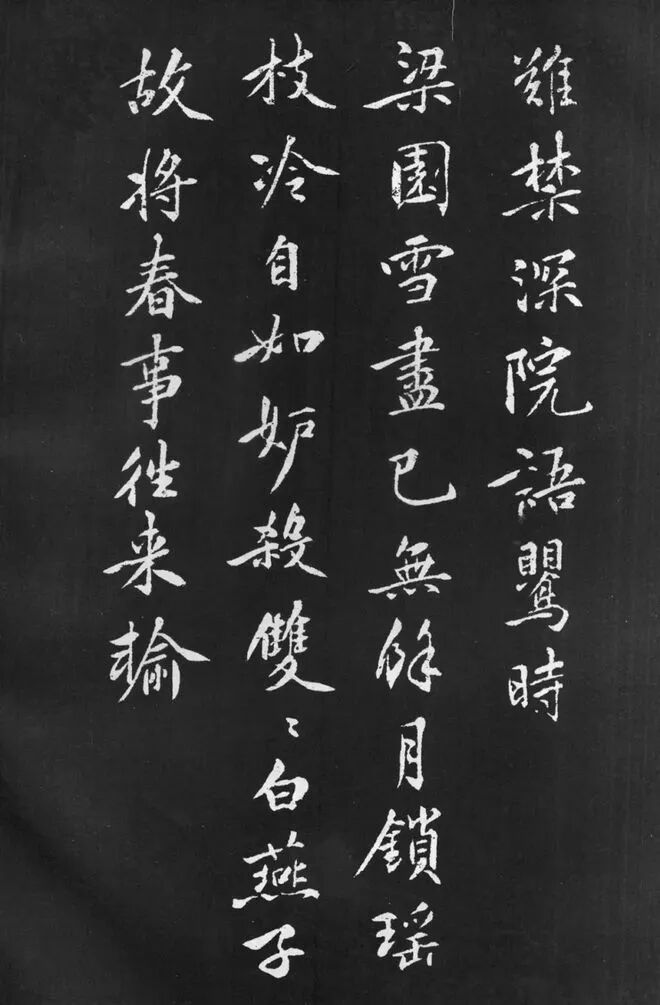 難禁深院語鸎時
梁園雪盡已無餘月鎖瑶
枝冷自如妒殺雙〻白燕子
故將春事徃来輸